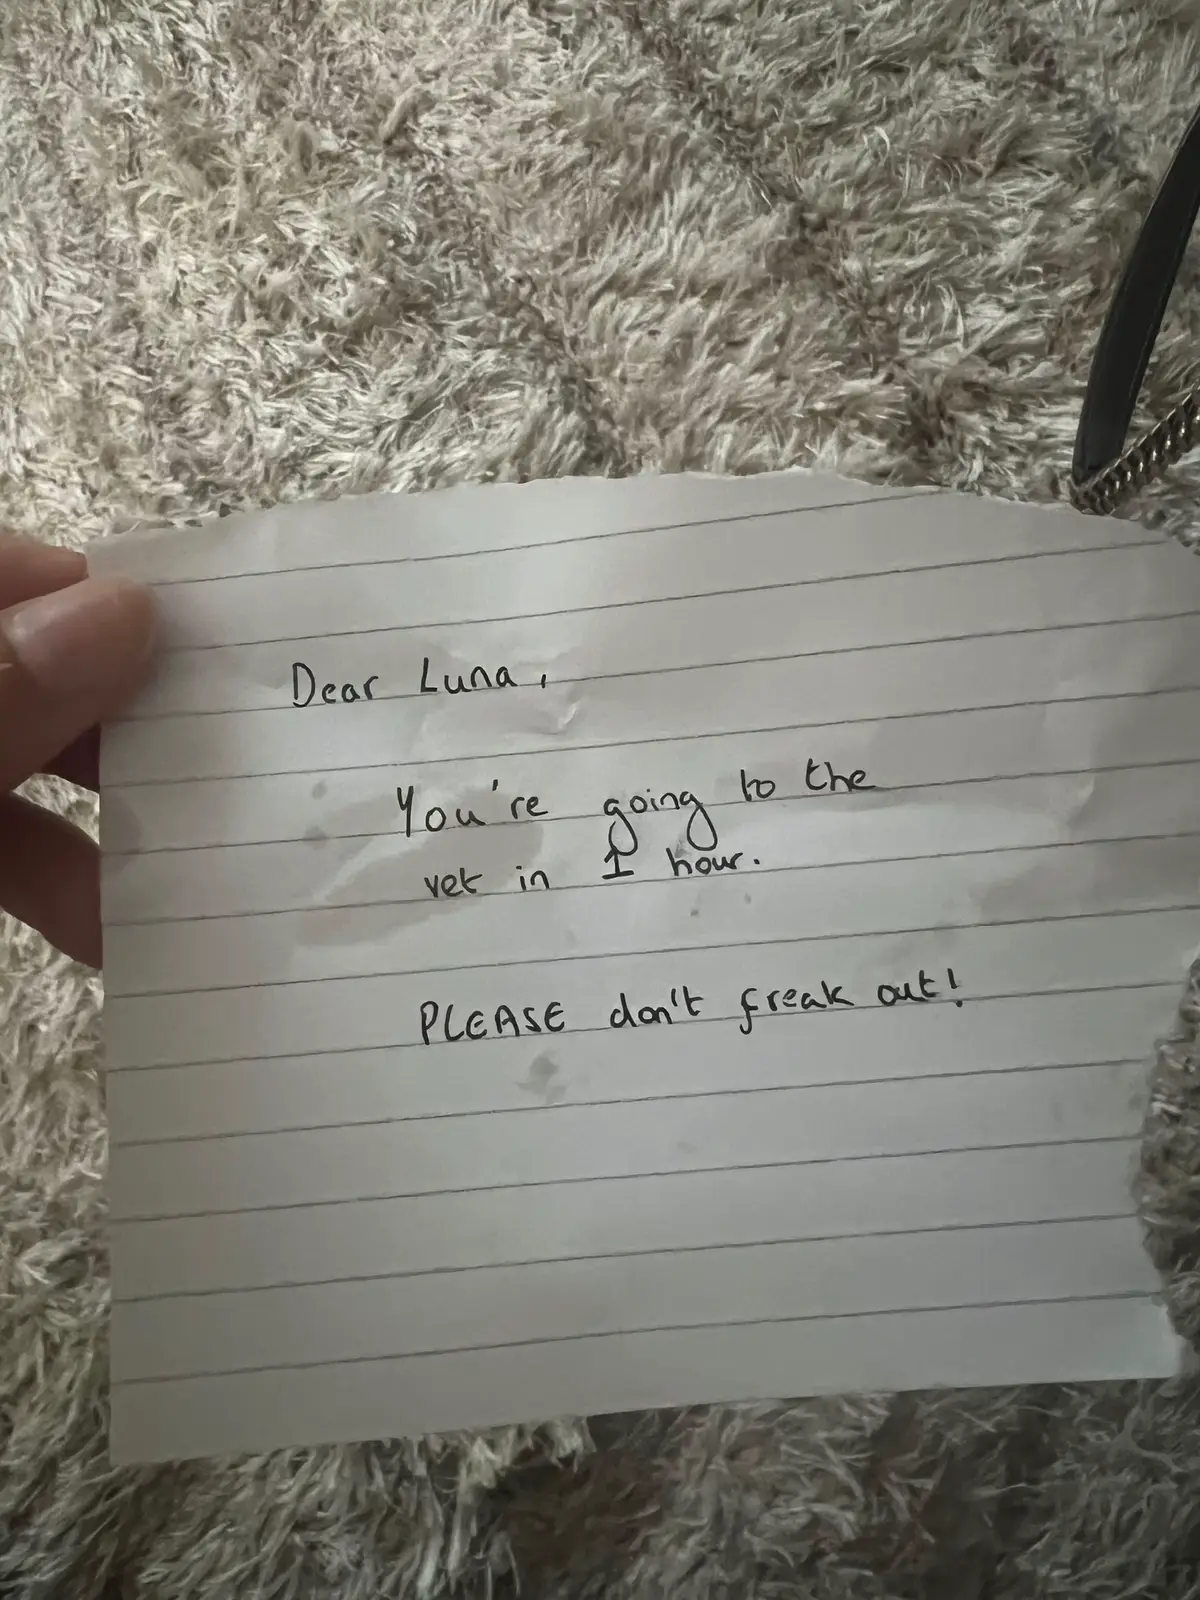 Dear Luna,
You're going to the
vet in 1 hour.
PLEASE don't freak out!